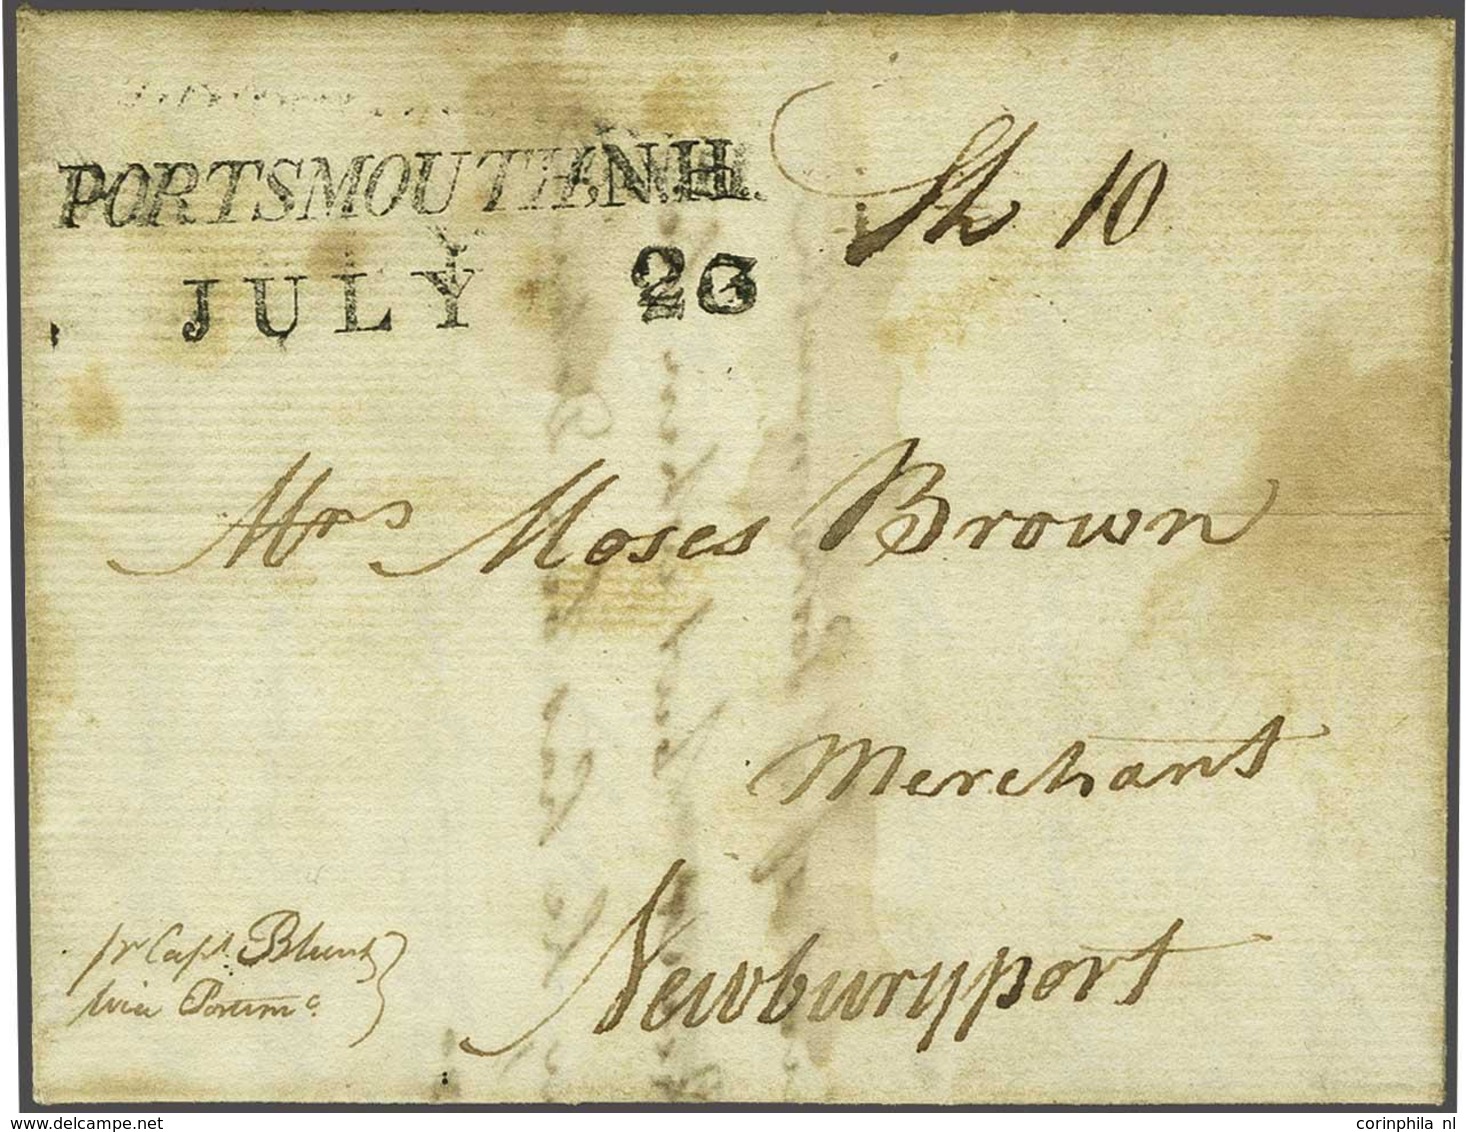 PORTSMOUTH, N.H.
JULY 23
Sh 10
Mrs Moses Brown
Merchant
Newburyport
pr Capt. Blunt
via Portsmo
corinphila nl